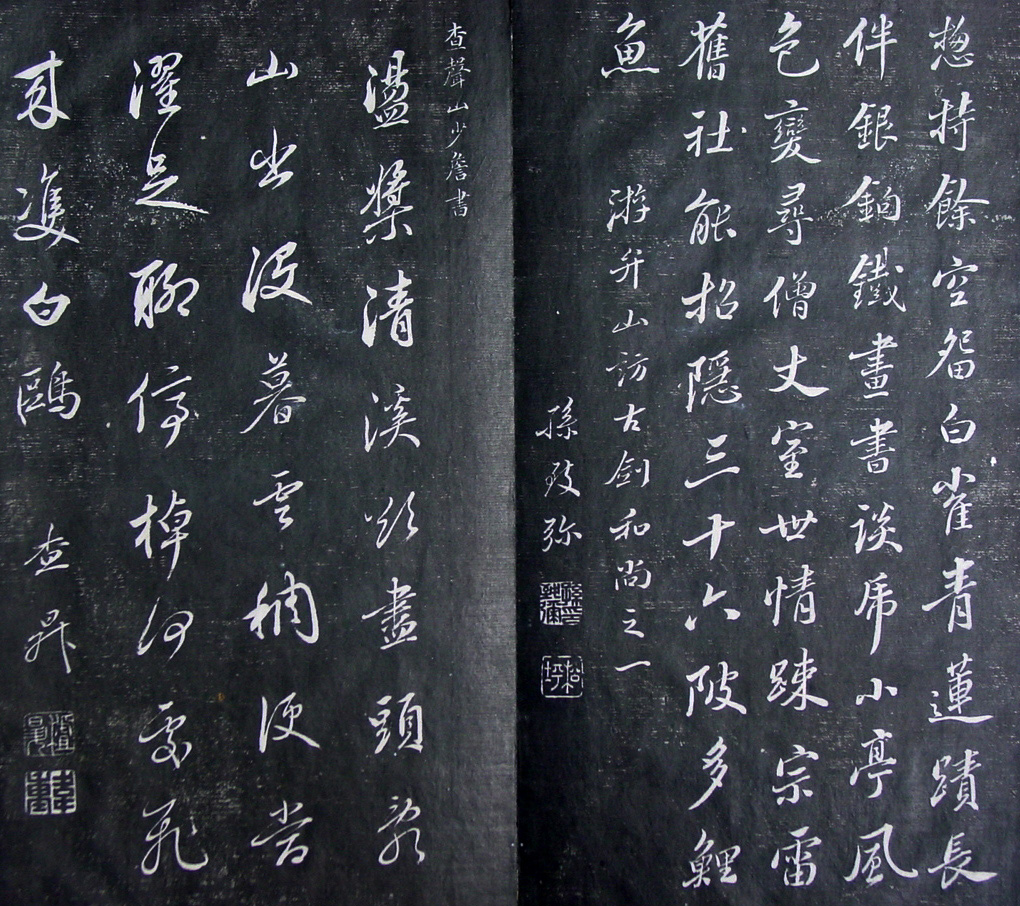 惣持餘空留白雀青蓮蹟長
伴銀鉤鐵畫書談虎小亭風
色變尋僧丈室世情疎宗雷
舊社能招隱三十六陂多鯉
魚
游升山訪古劍和尚之一
孫致彌
查聲山少詹書
盪槳清溪欲盡頭亂
山出沒暮雲稠便當
濯足聊停棹何處飛
來雙白鷗
查昇